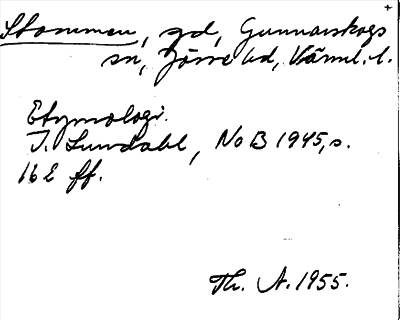 +
Stommen, gd, Gunnarskogs
sn, Jösse hd, Värml. l.
Etymologi.
I. Lundahl, NoB 1945, s.
162 ff.
Th. A. 1955.